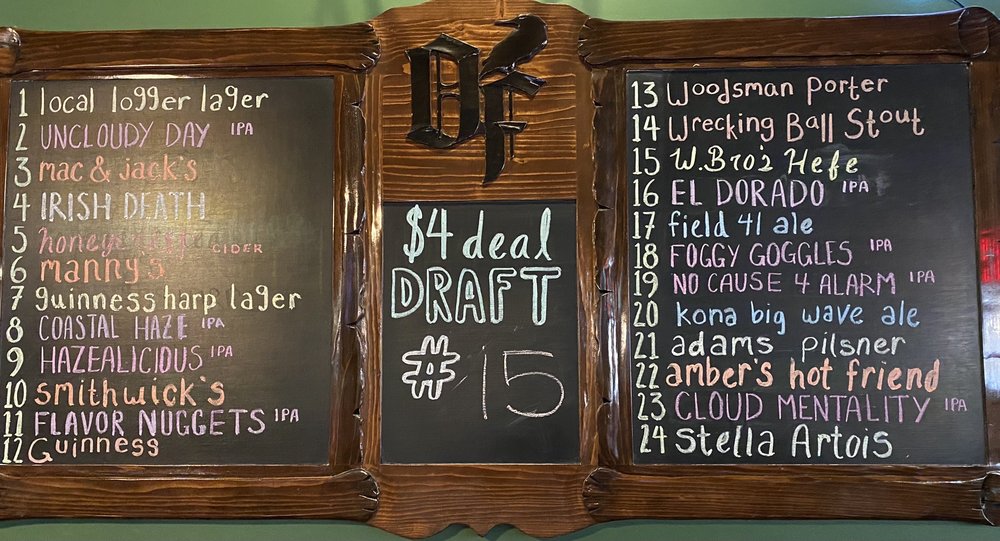 1 local logger lager
2 UNCLOUDY DAY IPA
3 mac & jack's
4 IRISH DEATH
5 CIDER
6 manny's
7 guinness harp lager
8 COASTAL HAZE IPA
9 HAZEALICIOUS IPA
10 smithwick's
11 FLAVOR NUGGETS IPA
12 Guinness
DF
$4 deal
DRAFT
# 15
13 Woodsman Porter
14 Wrecking Ball Stout
15 W.Bro's Hefe
16 EL DORADO IPA
17 field 41 ale
18 FOGGY GOGGLES IPA
19 NO CAUSE 4 ALARM IPA
20 kona big wave ale
21 adams pilsner
22 amber's hot friend
23 CLOUD MENTALITY IPA
24 Stella Artois